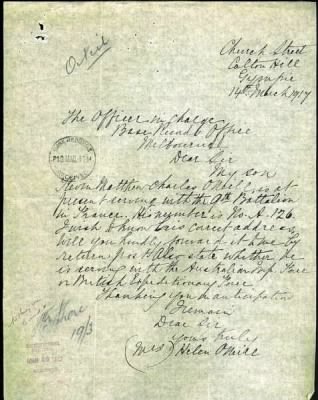 O'Neil
Church Street
Calton Hill
Gympie
14th March 1917
The Officer in Charge
Base Records Office
Melbourne
Dear Sir
My son
Kevin Matthew Charles O'Neill is at
present serving with the 9th Battalion
in France. His number is No. A. 126
I wish to know his correct address
Will you kindly forward it to me by
return post. Also state whether he
is serving with the Australian Imp Force
or British Expeditionary Force.
Thanking you in anticipation
I remain
Dear Sir
Yours truly
(Mrs) Helen O'Neill
19/3